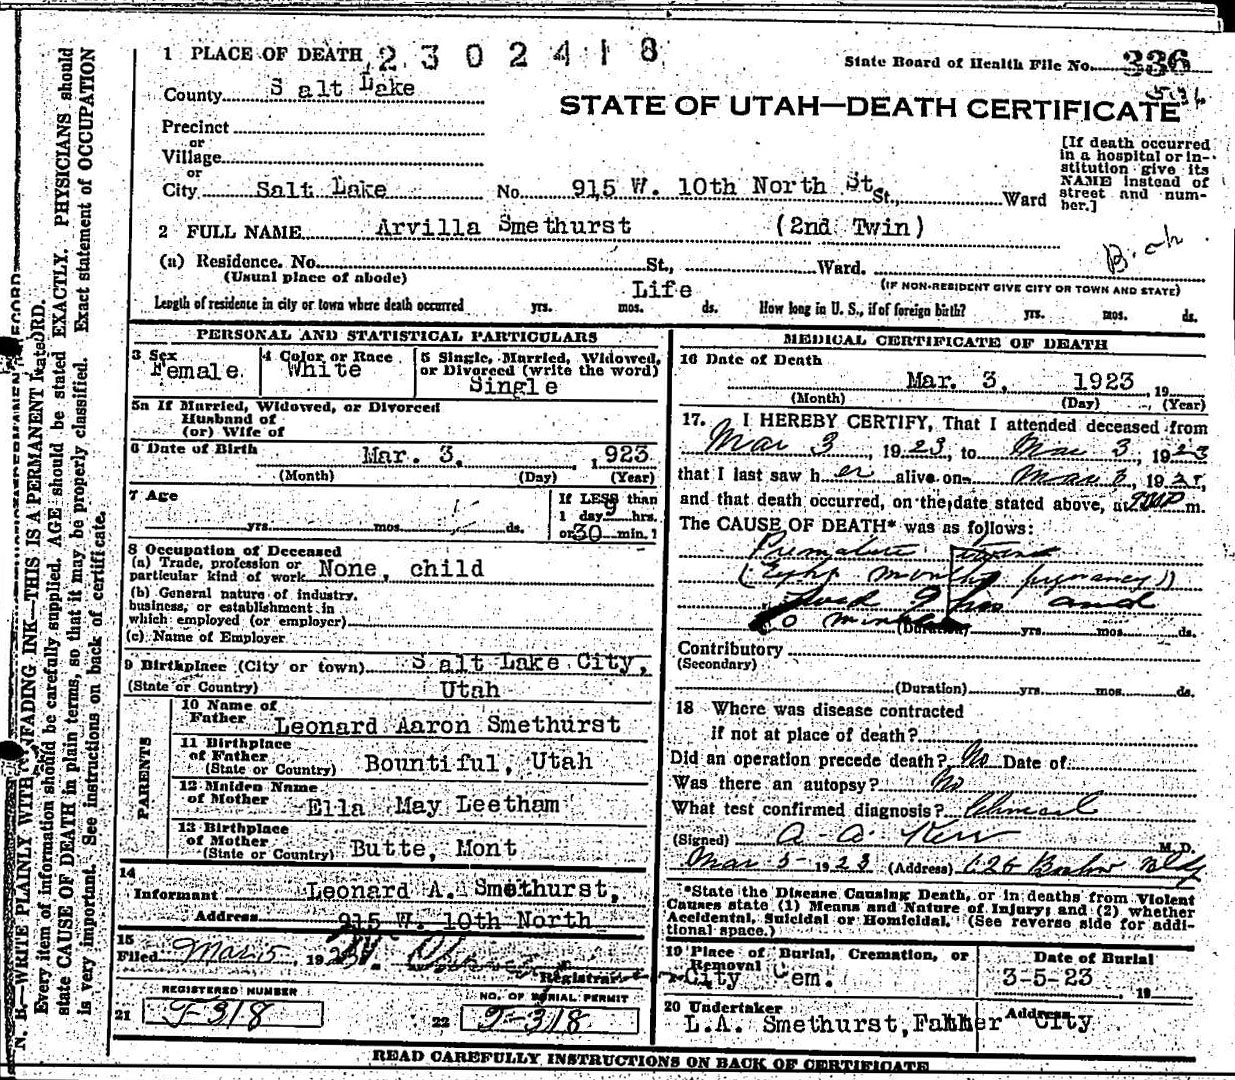 1 PLACE OF DEATH 2302418
State Board of Health File No. 336
County Salt Lake
STATE OF UTAH—DEATH CERTIFICATE
Precinct
or
Village
or
City Salt Lake No. 915 W. 10th North St St., Ward
[If death occurred in a hospital or in-
stitution give its NAME instead of street and num-
ber.]
2 FULL NAME Arvilla Smethurst (2nd Twin)
(a) Residence. No. St., Ward.
(Usual place of abode) (IF NON-RESIDENT GIVE CITY OR TOWN AND STATE)
Life
Length of residence in city or town where death occurred yrs. mos. ds. How long in U. S., if of foreign birth? yrs. mos. ds.
PERSONAL AND STATISTICAL PARTICULARS
3 Sex
Female
4 Color or Race
White
5 Single, Married, Widowed,
or Divorced (write the word)
Single
5a If Married, Widowed, or Divorced
Husband of
(or) Wife of
6 Date of Birth Mar. 3, 1923
(Month) (Day) (Year)
7 Age yrs. mos. ds.
If LESS than
1 day 9 hrs.
or 30 min. ?
8 Occupation of Deceased
(a) Trade, profession or
particular kind of work None, child
(b) General nature of industry,
business, or establishment in
which employed (or employer)
(c) Name of Employer
9 Birthplace (City or town) Salt Lake City,
(State or Country) Utah
PARENTS
10 Name of
Father Leonard Aaron Smethurst
11 Birthplace
of Father
(State or Country) Bountiful, Utah
12 Maiden Name
of Mother Ella May Leetham
13 Birthplace
of Mother
(State or Country) Butte, Mont
14
Informant Leonard A. Smethurst,
Address 915 W. 10th North
15
Filed Mar 5, 1923
Registrar
REGISTERED NUMBER
21 F-318
NO. OF BURIAL PERMIT
22 F-318
MEDICAL CERTIFICATE OF DEATH
16 Date of Death
Mar. 3, 1923, 19
(Month) (Day) (Year)
17. I HEREBY CERTIFY, That I attended deceased from
Mar 3, 1923, to Mar 3, 1923
that I last saw her alive on Mar 3, 192
and that death occurred, on the date stated above, at m.
The CAUSE OF DEATH* was as follows:
Premature
(Eight months pregnancy)
Lived 9 hrs and
(Duration) yrs. mos. ds.
Contributory
(Secondary)
(Duration) yrs. mos. ds.
18 Where was disease contracted
if not at place of death?
Did an operation precede death? No Date of
Was there an autopsy? No
What test confirmed diagnosis? Clinical
(Signed) A. A. Kerr M.D.
Mar 5-1923 (Address) 626 Bldg
*State the Disease Causing Death, or in deaths from Violent
Causes state (1) Means and Nature of Injury; and (2) whether
Accidental, Suicidal or Homicidal. (See reverse side for addi-
tional space.)
19 Place of Burial, Cremation, or
Removal
City Cem.
Date of Burial
3-5-23, 19
20 Undertaker
L.A. Smethurst, Father
Address City
READ CAREFULLY INSTRUCTIONS ON BACK OF CERTIFICATE
N. B.—WRITE PLAINLY WITH UNFADING INK—THIS IS A PERMANENT RECORD.
Every item of information should be carefully supplied. AGE should be stated EXACTLY. PHYSICIANS should
state CAUSE OF DEATH in plain terms, so that it may be properly classified. Exact statement of OCCUPATION
is very important. See instructions on back of certificate.